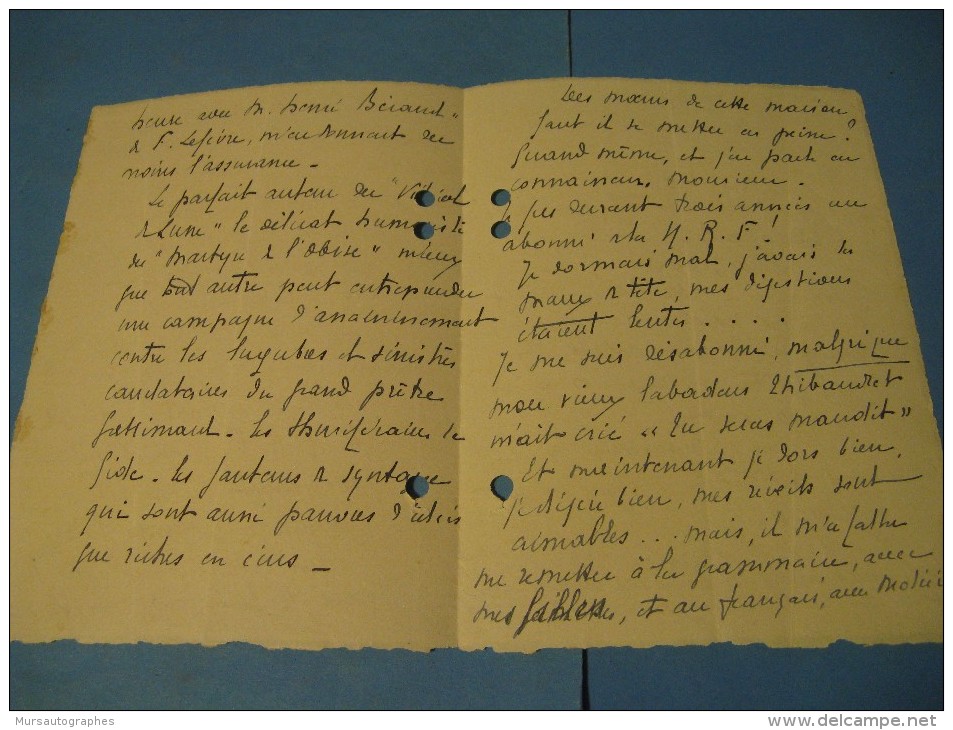 heure avec M. Henri Béraud "
& F. Lefèvre, m'en donnent du
moins l'assurance _
Le parfait auteur du "Vitriol
de Lune" le délicat humoriste
du "Martyre de l'Obèse" mieux
que tout autre peut entreprendre
une campagne d'
contre les lugubres et sinistres
caudataires du grand prêtre
Gallimard _ les thuriféraires de
Gide _ les fauteurs de syntaxe
qui sont aussi pauvres d'idées
que riches en _
Les moeurs de cette maison
faut il se mettre en peine?
Quand même, et j'en parle en
connaisseur, Monsieur.
Je fus durant trois années un
abonné à la N. R. F!
Je dormais mal, j'avais des
maux de tête, mes digestions
étaient lentes . . . .
Je me suis désabonné, malgré que
mon vieux Thibaudet
m'ait crié "Tu seras maudit"
Et maintenant je dors bien,
je digère bien, mes réveils sont
aimables . . . mais, il m'a fallu
me remettre à la grammaire, avec
mes , et au français, avec
Mursautographes
www.delcampe.net